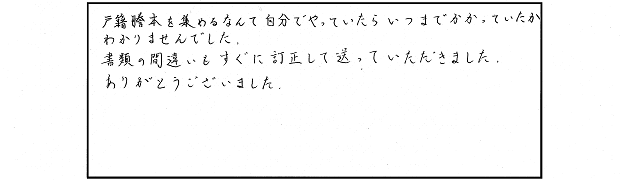 戸籍謄本を集めるなんて自分でやっていたらいつまでかかっていたか
わかりませんでした.
書類の間違いもすぐに訂正して送っていただきました.
ありがとうございました.